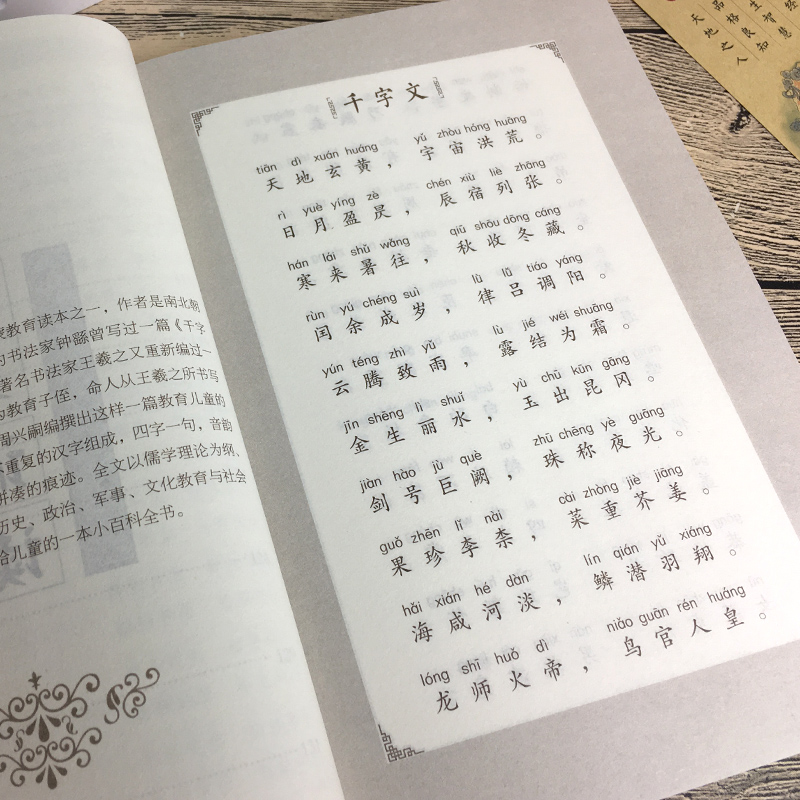 家教育读本之一，作者是南北朝
书法家钟繇曾写过一篇《千字
著名书法家王羲之又重新编过一
为教育子侄，命人从王羲之所书写
周兴嗣编撰出这样一篇教育儿童的
重复的汉字组成，四字一句，音韵
拼凑的痕迹。全文以儒学理论为纲、
历史、政治、军事、文化教育与社会
给儿童的一本小百科全书。
千字文
tiān dì xuán huáng yǔ zhòu hóng huāng
天地玄黄，宇宙洪荒。
rì yuè yíng zè chén xiù liè zhāng
日月盈昃，辰宿列张。
hán lái shǔ wǎng qiū shōu dōng cáng
寒来暑往，秋收冬藏。
rùn yú chéng suì lǜ lǚ tiáo yáng
闰余成岁，律吕调阳。
yún téng zhì yǔ lù jié wéi shuāng
云腾致雨，露结为霜。
jīn shēng lì shuǐ yù chū kūn gāng
金生丽水，玉出昆冈。
jiàn hào jù què zhū chēng yè guāng
剑号巨阙，珠称夜光。
guǒ zhēn lǐ nài cài zhòng jiè jiāng
果珍李柰，菜重芥姜。
hǎi xián hé dàn lín qián yǔ xiáng
海咸河淡，鳞潜羽翔。
lóng shī huǒ dì niǎo guān rén huáng
龙师火帝，鸟官人皇。
天地之人
品格良知
主智慧